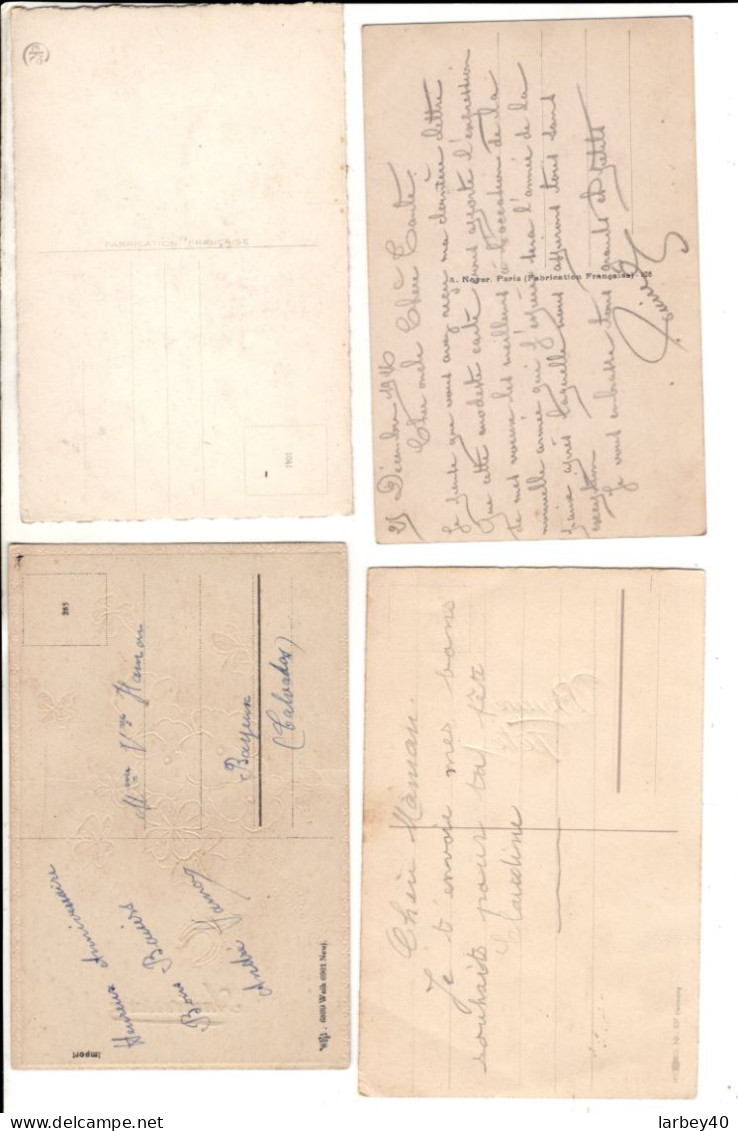 FABRICATION FRANÇAISE
1901
25 Décembre 1916
Cher oncle Chère Tante.
Je pense que vous avez reçu ma dernière lettre
Que cette modeste carte vous apporte l'expression
de mes voeux les meilleurs à l'occasion de la
nouvelle année qui j'espère sera l'année de la
paix après laquelle nous aspirons tous sans
exception
Je vous embrasse tous grands et petits
A. Noyer. Paris (Fabrication Française)
285
Mme Vve Hamon
Bayeux
(Calvados)
Heureux Anniversaire
Bons Baisers
André
Import
Chère Maman.
Je t'envoie mes bons
souhaits pour ta fête
Claudine
larbey40